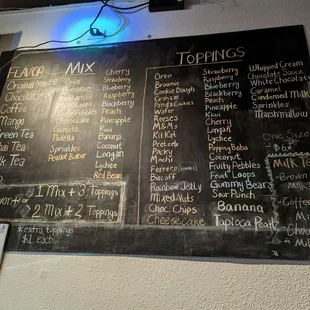 FLAVOR
Original
Chocolate
Coffee
Mango
Green Tea
Thai Tea
Milk Tea
MIX
Oreo
Brownie
Cheesecake
Gansito
Nutella
Sprinkles
Peanut Butter
Cherry
Strawberry
Blueberry
Raspberry
Blackberry
Peach
Pineapple
Kiwi
Banana
Coconut
Longan
Lychee
Red Bean
1 Mix + 3 Toppings
or
2 Mix + 2 Toppings
*extra toppings
$1 each
TOPPINGS
Oreo
Brownie
Cookie Dough
Graham
Panda Cookies
Wafer
Reeses
M&M's
Kit Kat
Pretzels
Pocky
Mochi
Ferrero
Biscoff
Rainbow Jelly
Mixed Nuts
Choc. Chips
Cheesecake
Strawberry
Raspberry
Blueberry
Blackberry
Peach
Pineapple
Kiwi
Cherry
Mango
Longan
Lychee
Popping Boba
Coconut
Fruity Pebbles
Fruit Loops
Gummy Bears
Sour Punch
Banana
Tapioca Pearl
Whipped Cream
Chocolate Sauce
White Chocolate
Caramel
Condensed Milk
Sprinkles
Marshmallow
One Size
MILK TEA
-Brown
Milk
-Coffee